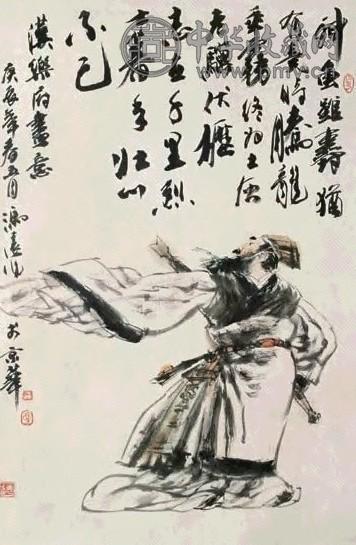 神龜雖壽猶
有竟時騰龍
乘霧終為土灰
老驥伏櫪
志在千里烈
士暮年壮心
不已
漢樂府畫意
庚辰年春五月馮遠作
於京華
中华收藏网